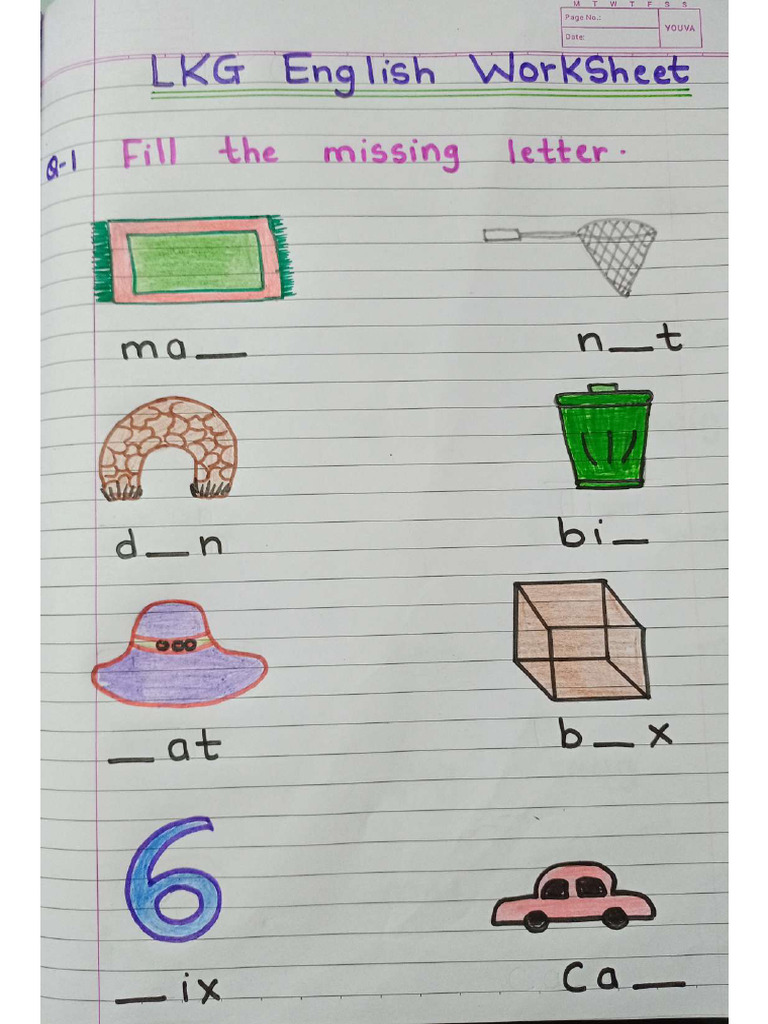 M T W T F S S
Page No.:
YOUVA
Date:
LKG English WorkSheet
Q-1 Fill the missing letter.
ma_
n_t
d_n
bi_
_at
b_x
6
_ix
Ca_